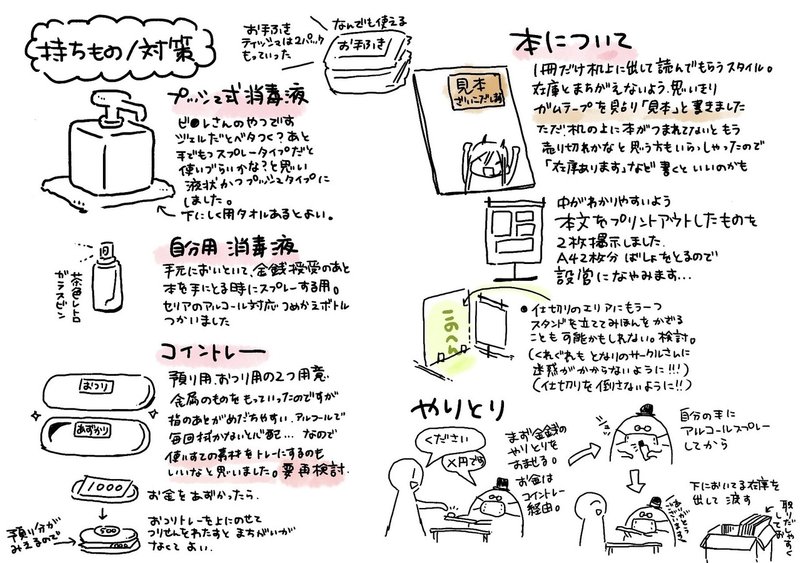 持ちもの/対策
お手ふき
ティッシュは2パック
もっていった
なんでも使える
お手ふき
プッシュ式消毒液
ビ●レさんのやつです
ジェルだとベタつく?あと
手でもつスプレータイプだと
使いづらいかな?と思い
液状かつプッシュタイプに
しました。
下にしく用タオルあるとよい。
自分用 消毒液
茶色レトロ
ガラスビン
手元においといて、金銭授受のあと
本を手にとる時にスプレーする用。
セリアのアルコール対応つめかえボトル
つかいました
コイントレー
おつり
あずかり
預り用、おつり用の2つ用意
金属のものをもっていったのですが
指のあとがめだちやすい、アルコールで
毎回拭かないと心配…なので
使いすての素材をトレーにするのも
いいなと思いました。要再検討
1000
お金をあずかったら、
預り分が
みえるので
500
おつりトレーを上にのせて
つりせんをわたすと まちがいが
なくてよい。
本について
見本
1冊だけ机上に出して読んでもらうスタイル。
在庫とまちがえないよう、思いきり
ガムテープを貼り「見本」と書きました
ただ机の上に本がつまれてないともう
売り切れかなと思う方もいらっしゃったので
「在庫あります」など書くといいのかも
中がわかりやすいよう
本文をプリントアウトしたものを
2枚掲示しました。
A4 2枚分 ばしょをとるので
設営になやみます…
このへん
●仕切りのエリアにもう一つ
スタンドを立ててみほんをかざる
ことも可能かもしれない。検討。
(くれぐれも となりのサークルさんに
迷惑がかからないように!!!)
(仕切りを倒さないように!!)
やりとり
ください
×円です
まず金銭の
やりとりを
すませる。
お金は
コイントレー
経由。
自分の手に
アルコールスプレー
してから
下においてる在庫を
出して 渡す
取りだしやすく
しておく